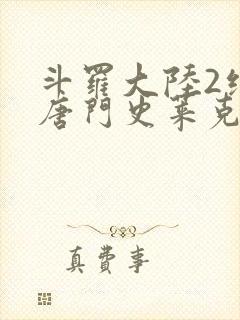 斗羅大陸2
唐門史萊克
真費事